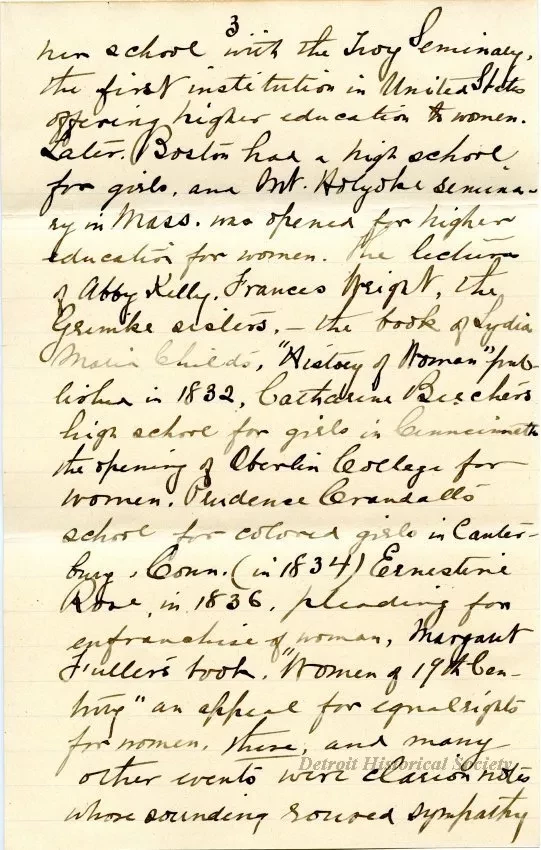 3
her school with the Troy Seminary,
the first institution in United States
offering higher education to women.
Later, Boston had a high school
for girls, and Mt. Holyoke semina-
ry in Mass. was opened for higher
education for women. The lectures
of Abby Kelly, Frances Wright, the
Grimke sisters, - the book of Lydia
Maria Childs, "History of Woman" pub-
lished in 1832, Catharine Beecher's
high school for girls in Cinncinnatti
the opening of Oberlin College for
women. Prudence Crandall's
school for colored girls in Canter-
bury, Conn. (in 1834) Ernestine
Rose, in 1836, pleading for
enfranchise of woman, Margaret
Fuller's book, "Women of 19th Cen-
tury" an appeal for equal rights
for women, these, and many
other events were clarion notes
whose sounding roused sympathy
Detroit Historical Society